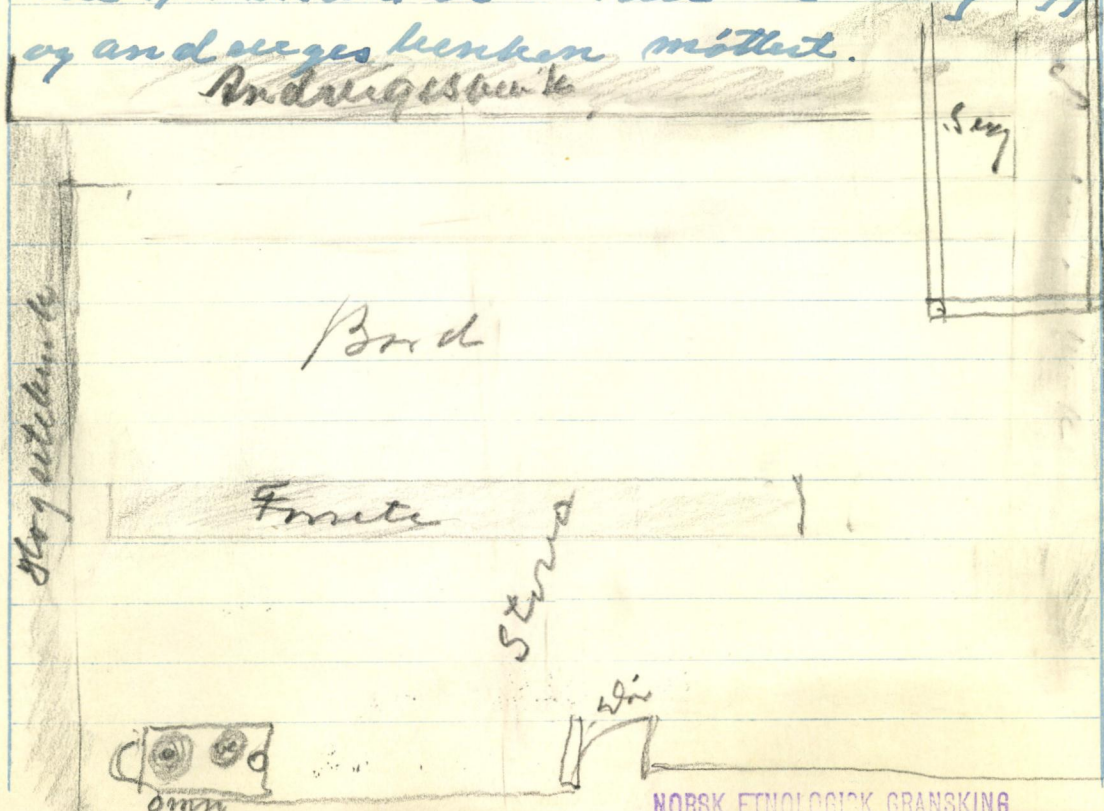 og andveges benken møttest.
Andveigesbenk
Seng
Bord
Høgsetebenk
Forsete
Stova
Dør
omn
NORSK ETNOLOGISK GRANSKING